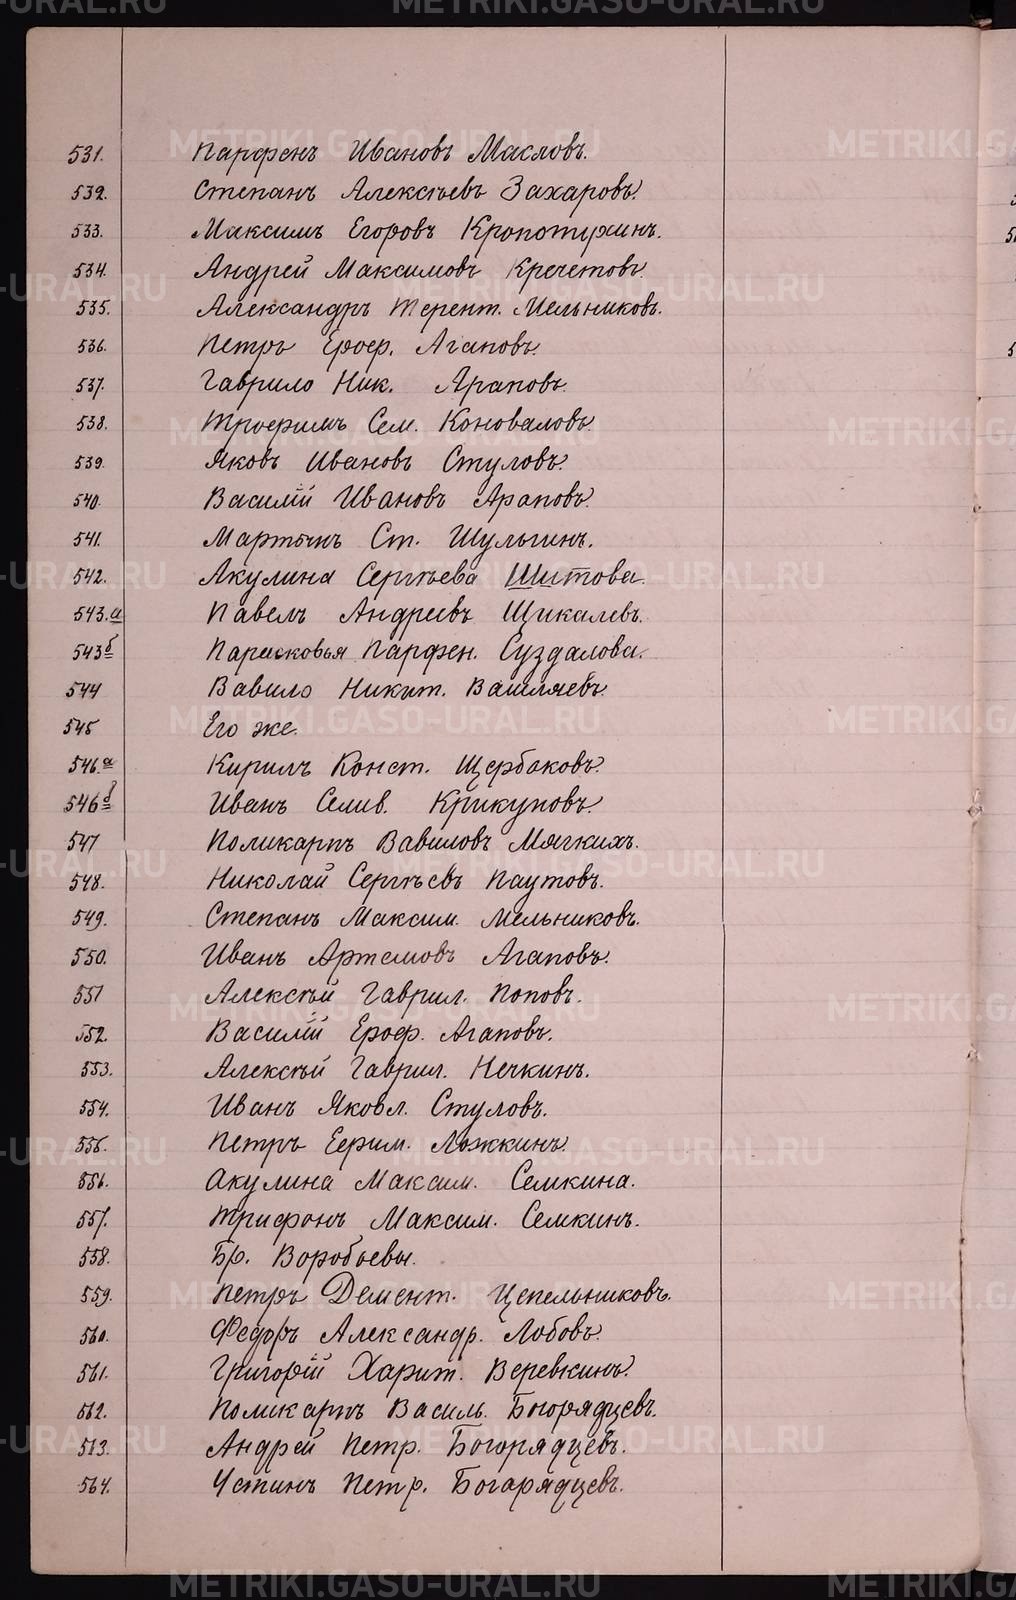 531. Парфенъ Ивановъ Масловъ.
532. Степанъ Алексѣевъ Захаровъ.
533. Максимъ Егоровъ Кропотухинъ.
534. Андрей Максимовъ Кречетовъ
535. Александръ Терент. Мельниковъ.
536. Петръ Ероф. Агаповъ.
537. Гаврило Ник. Араповъ.
538. Трофимъ Сем. Коноваловъ
539. Яковъ Ивановъ Стуловъ.
540. Василій Ивановъ Араповъ.
541. Ст. Шульгинъ.
542. Акулина Сергѣева Шитова.
543.а Павелъ Андреевъ Щикалевъ.
543б Парасковья Парфен. Суздалова.
544 Вавило Никит. Вашляевъ.
545 Его же.
546.а Кирилъ Конст. Щербаковъ.
546б Иванъ Селив. Крикуновъ.
547 Поликарпъ Вавиловъ Мягкихъ.
548. Николай Сергѣевъ Паутовъ.
549. Степанъ Максим. Мельниковъ.
550. Иванъ Артемовъ Агаповъ.
551 Алексѣй Гаврил. Поповъ.
552. Василій Ероф. Агаповъ.
553. Алексѣй Гаврил. Нечкинъ.
554. Иванъ Яковл. Стуловъ.
555. Петръ Ефим. Ложкинъ.
556. Акулина Максим. Семкина.
557. Трифонъ Максим. Семкинъ.
558. Бр. Воробьевы.
559. Петръ Демент. Цепельниковъ.
560. Федоръ Александр. Лобовъ.
561. Григорій Харит. Веревкинъ.
562. Поликарпъ Василь. Богорядцевъ.
563. Андрей Петр. Богорядцевъ.
564. Устинъ Петр. Богарядцевъ.
METRIKI.GASO-URAL.RU